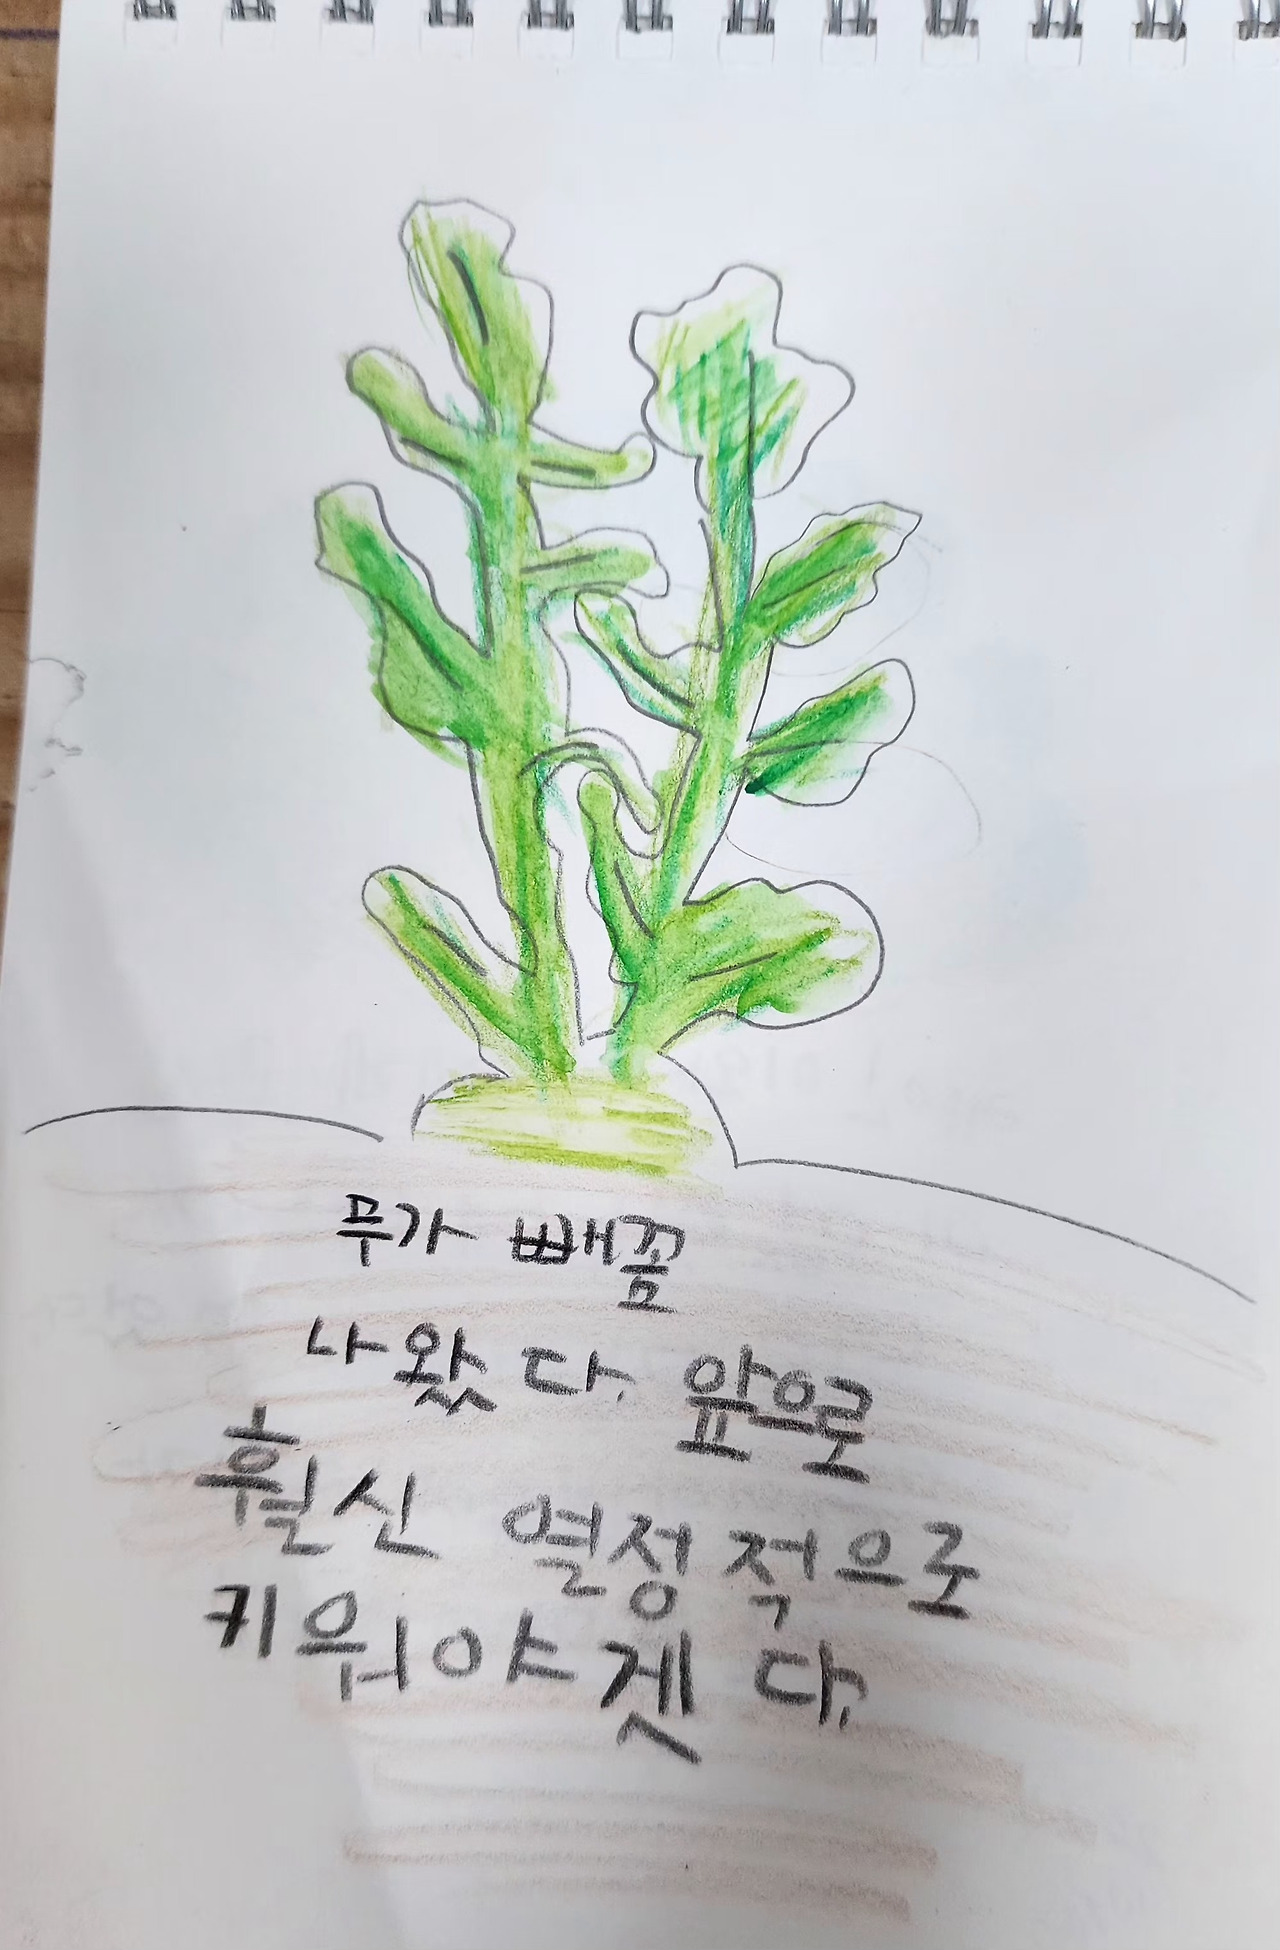 무가 빼꼼
나왔다. 앞으로
훨신 열정적으로
키워야겟다.